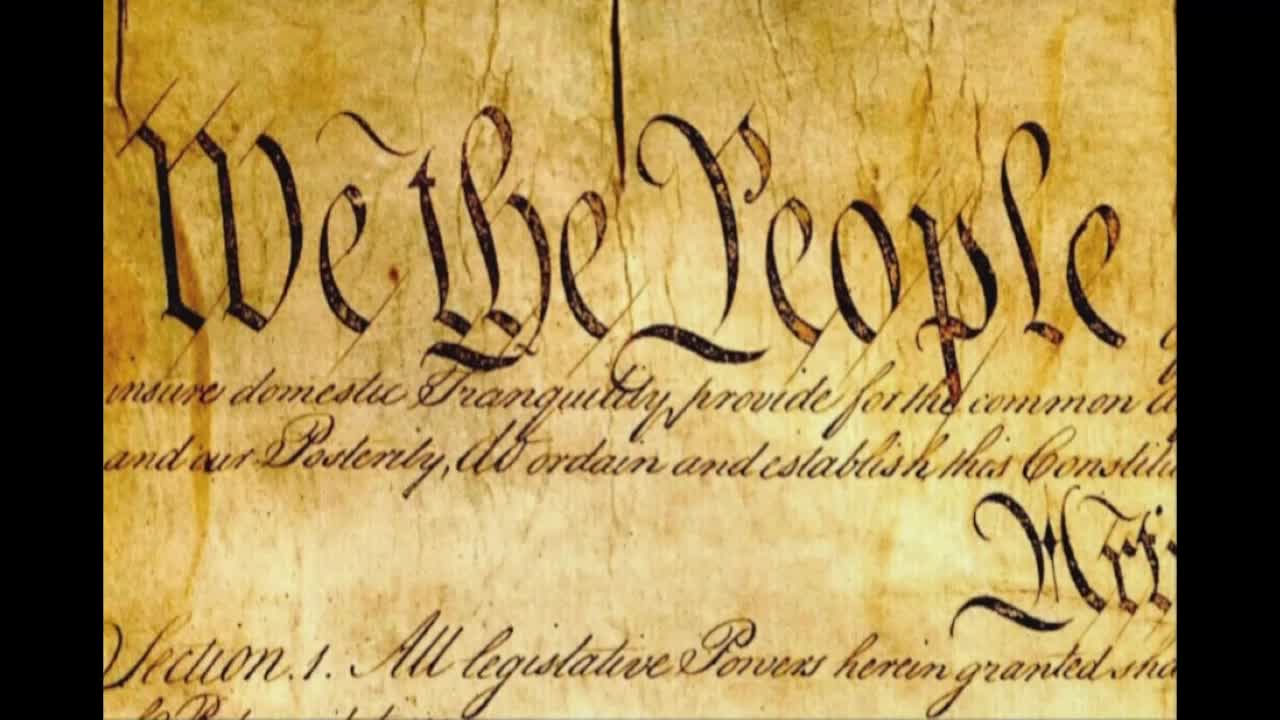 We the People
insure domestic Tranquility, provide for the common
and our Posterity, do ordain and establish this Constitu
Arti
Section. 1. All legislative Powers herein granted sha